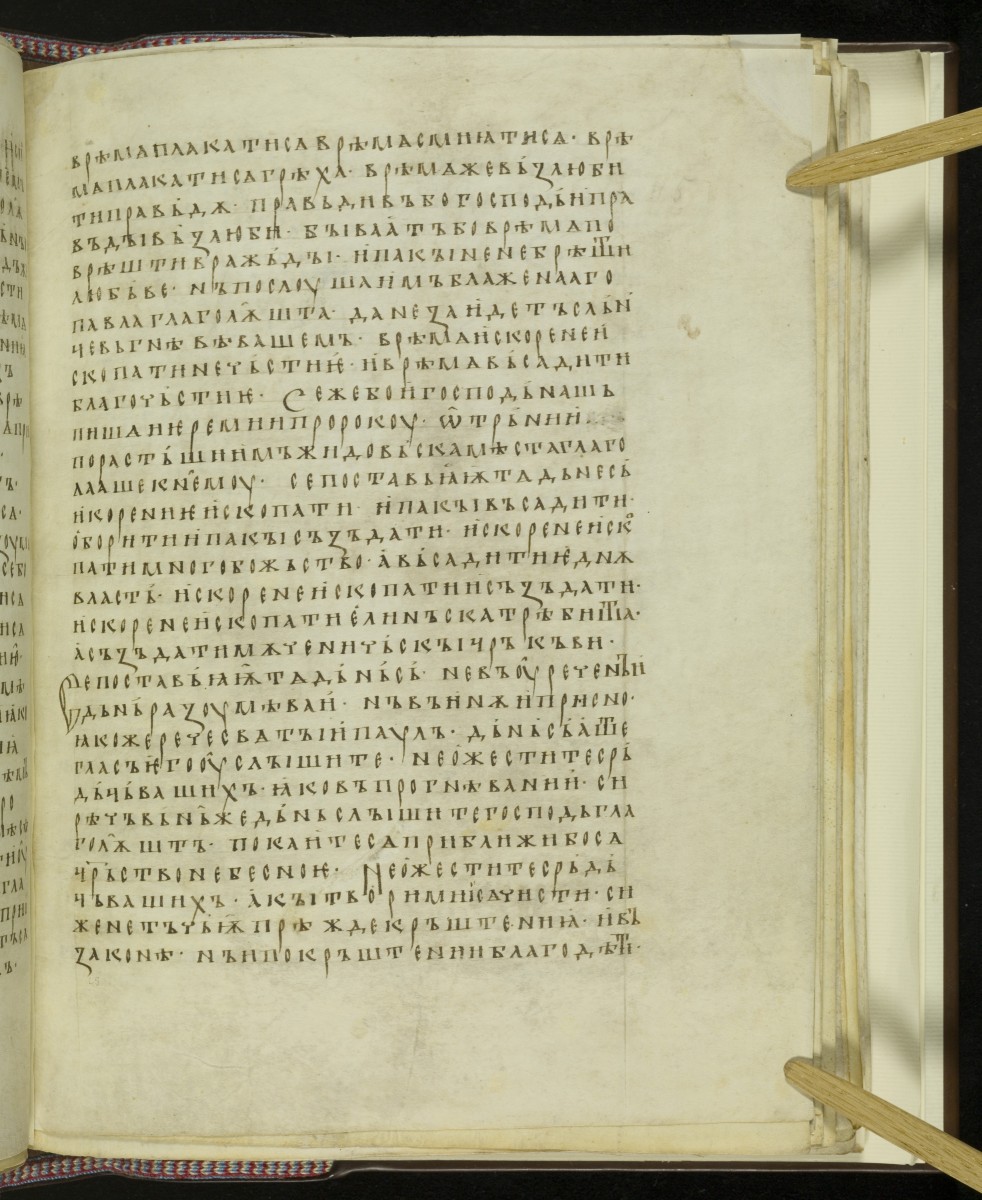 врѣмаплакатисаврѣмасмиꙗтиса· врѣ
маплакатисагрѣха· врѣмажевьꙁлюби
типравьдѫ· правьдивъбогосподьнпра
въдꙑвьꙁлюби· бꙑваатъбоврѣмапо
врѣштивражьдꙑ· ипакꙑненебрѣшти
любьве· нъпослоушаимъблаженааго
павлаглаголѭшта· данеꙁаидетъслън
чевьгнѣвѣвашемь· врѣмаискоренен
скопатинечьстиѥ· иврѣмавьсадити
благочьстиѥ· Сежебоигосподьнашъ
пишаниѥремиипророкоу· ѿтрьнии
порастъшиимъжидовьскамѣстаглаго
лаашекнемоу· сепоставьꙗѭтадьнесь
икорениѥископати· ипакꙑвъсадити·
оборитиипакꙑсъꙁъдати· искоренеиско
патимногобожьство· авьсадитиѥдинѫ
власть· искоренеископатиисъꙁъдати·
искоренеископатиелинъскатрѣбишта·
асъꙁъдатимѫченичьскꙑчрькъви·
Сепоставьꙗѭтадьньсь· невъоурѐченꙑи
дьньраꙁоумѣваи· нъвъинѫиприсно·
ꙗкожеречесватꙑипаулъ· дьньсьаште
гласъѥгооуслꙑшите· неожеститесрь
дьчьвашихъ· ꙗковъпрогнѣвании· си
рѣчьвъньжедьньслꙑшитегосподьгла
голѭштъ· покаитесаприближибоса
чрьствонебесноѥ· Неожеститесрьдь
чьвашихъ· акꙑтворимниисачисти· си
женетъчьѭпрѣждекръштениꙗ· ивъ
ꙁаконѣ· нъипокръштениибладодѣти·